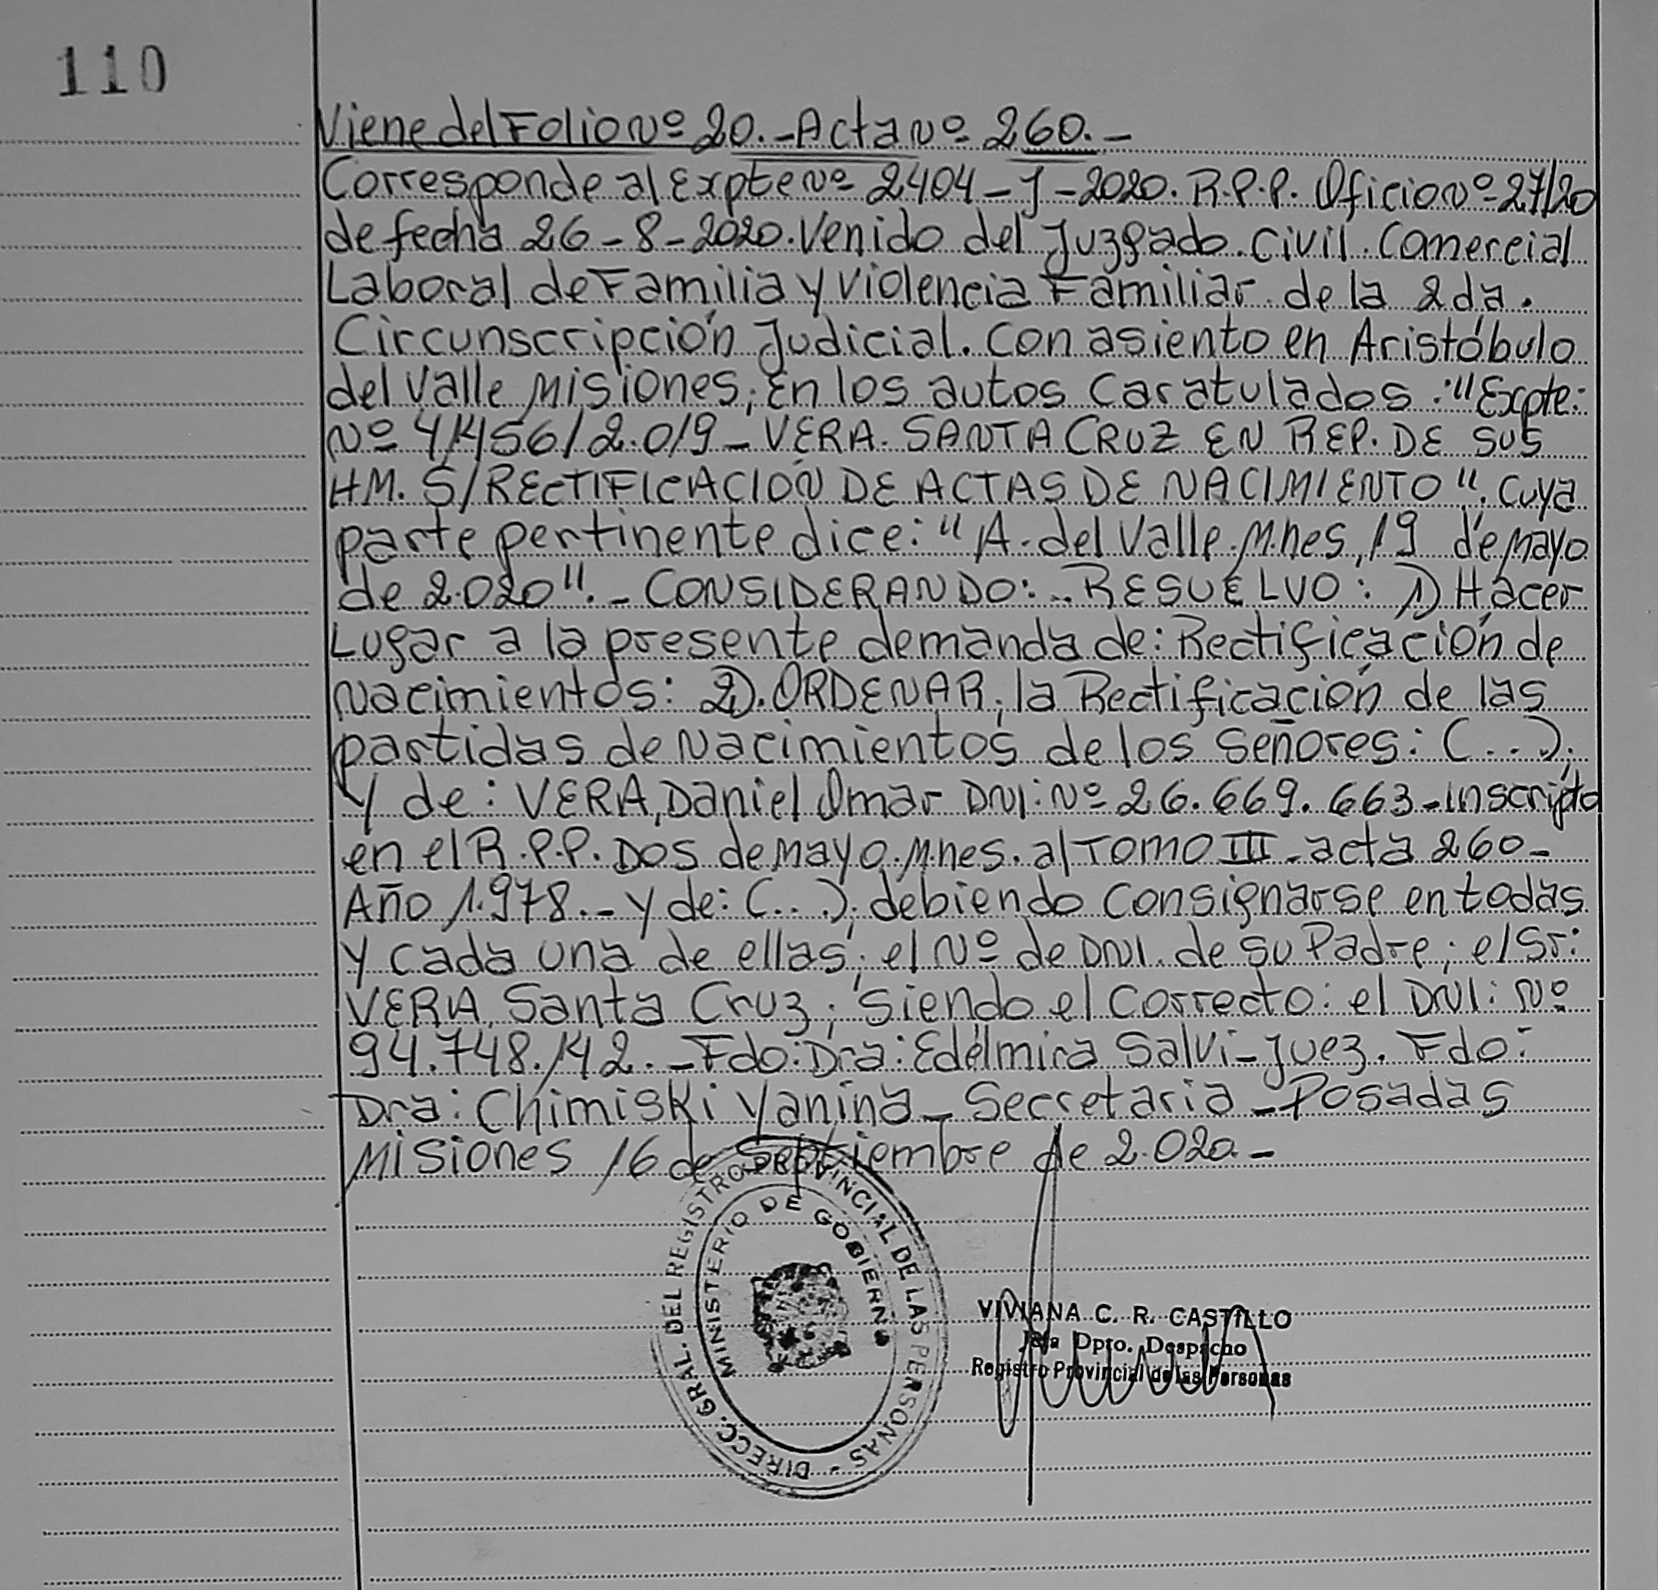 110
Viene del Folio Nº 20.-Acta Nº 260.-
Corresponde al Expte Nº 2404-J-2020. R.P.P. Oficio Nº 27/20
de fecha 26-8-2020. Venido del Juzgado. Civil. Comercial
Laboral de Familia y Violencia Familiar. de la 2da.
Circunscripción Judicial. Con asiento en Aristóbulo
del Valle Misiones; En los autos Caratulados: "Expte:
Nº 41456/2.019-VERA. SANTA CRUZ EN REP. DE SUS
HM. S/RECTIFICIACIÓN DE ACTAS DE NACIMIENTO". Cuya
parte pertinente dice: "A. del Valle. Mnes, 19 de Mayo
de 2.020".- CONSIDERANDO:.. RESUELVO: 1) Hacer
Lugar a la presente demanda de: Rectificación de
Nacimientos: 2). ORDENAR; la Rectificación de las
partidas de Nacimientos de los Señores: (...);
Y de: VERA, Daniel Omar DNI: Nº 26.669.663-inscripto
en el R.P.P. Dos de Mayo. Mnes. al TOMO III-acta 260-
Año 1.978.- y de: (...); debiendo consignarse en todas
y cada una de ellas; el Nº de DNI. de su Padre; el Sr:
VERA, Santa Cruz; Siendo el Correcto: el DNI: Nº
94.748.142.-Fdo: Dra: Edelmira Salvi-Juez. Fdo:
Dra: Chimiski Yanina-Secretaria-Posadas
Misiones 16 de Septiembre de 2.020.-
DIRECC. GRAL. DEL REGISTRO PROVINCIAL DE LAS PERSONAS -
MINISTERIO DE GOBIERNO
VIVIANA C. R. CASTILLO
Jefa Dpto. Despacho
Registro Provincial de las Personas